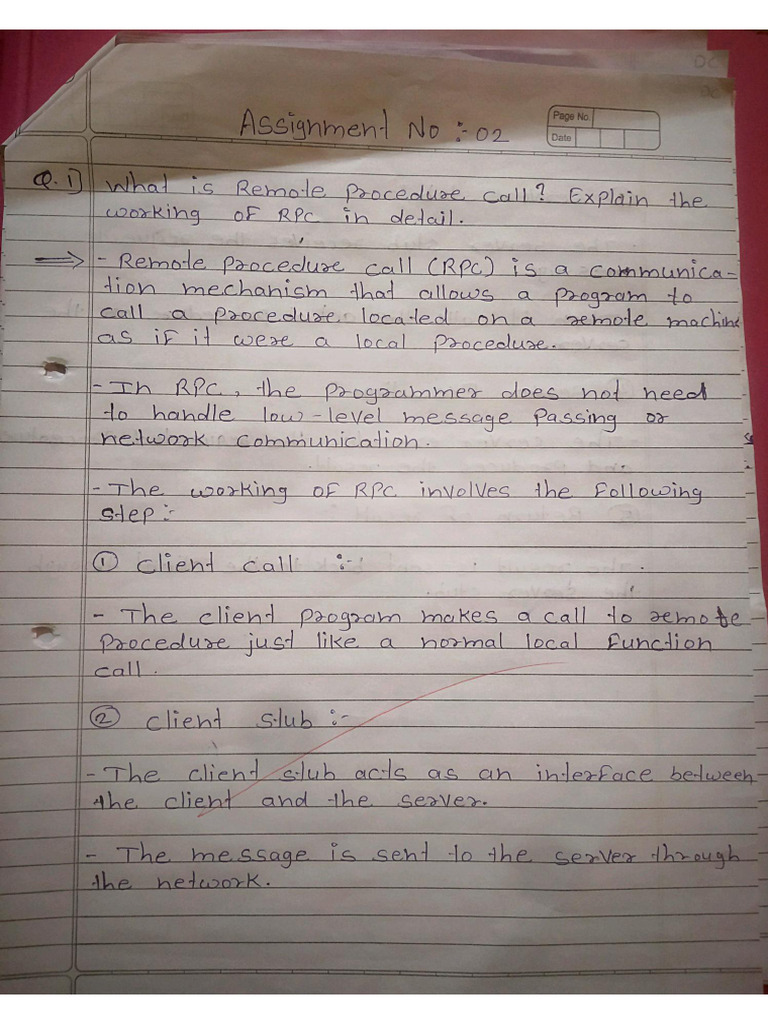 DC
DC
Assignment No :- 02
Page No.
Date
Q.1) What is Remote Procedure call? Explain the
working of RPC in detail.
⇒ - Remote Procedure call (RPC) is a communica-
tion mechanism that allows a program to
call a procedure located on a remote machine
as if it were a local procedure.
- In RPC, the programmer does not need
to handle low-level message passing or
network communication.
- The working of RPC involves the following
step :-
① client call :-
- The client program makes a call to remote
procedure just like a normal local function
call.
② client stub :-
- The client stub acts as an interface between
the client and the server.
- The message is sent to the server through
the network.